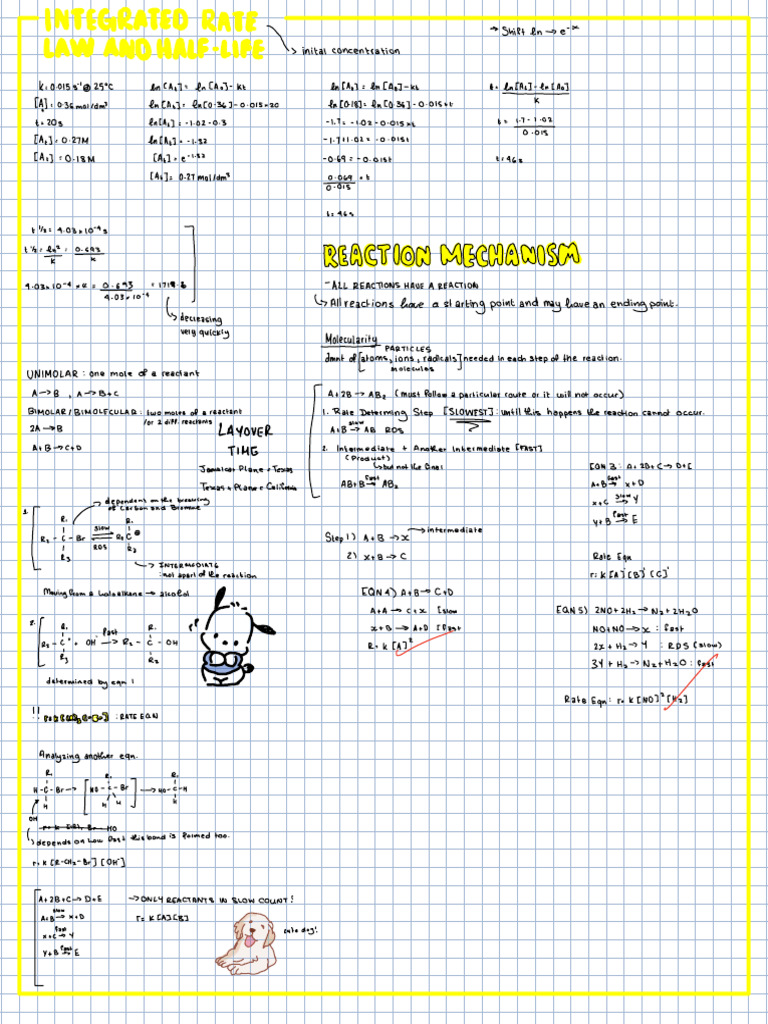 INTEGRATED RATE
LAW AND HALF-LIFE
inital concentration
→ Shift ln → e^-x
k = 0.015 s⁻¹ @ 25°C
[A₀] = 0.36 mol/dm³
t = 20s
[A₁] = 0.27M
[A₁] = 0.18M
ln[A₁] = ln[A₀] - kt
ln[A₁] = ln[0.36] - 0.015×20
ln[A₁] = -1.02 - 0.3
ln[A₁] = -1.32
[A₁] = e^-1.32
[A₁] = 0.27 mol/dm³
ln[A₁] = ln[A₀] - kt
ln[0.18] = ln[0.36] - 0.015×t
-1.7 = -1.02 - 0.015×t
-1.7+1.02 = -0.015t
-0.69 = -0.015t
0.069/0.015 = t
t = 46s
t = ln[A₁] - ln[A₀]/k
t = 1.7 - 1.02/0.015
t = 46s
t ½ = 4.03×10⁻⁴ s
t ½ = ln²/k = 0.693/k
4.03×10⁻⁴ × k = 0.693/4.03×10⁻⁴ = 1719.6
decreasing
very quickly
REACTION MECHANISM
- ALL REACTIONS HAVE A REACTION
↳ All reactions have a starting point and may have an ending point.
Molecularity
PARTICLES
dmnt of [atoms, ions, radicals] needed in each step of the reaction.
molecules
UNIMOLAR : one mole of a reactant
A → B , A → B+C
BIMOLAR/BIMOLECULAR : two moles of a reactant
/or 2 diff. reactants
2A → B
A+B → C+D
LAYOVER
TIME
Jamaica + Plane → Texas
Texas + Plane → California
A+2B → AB₂ (must follow a particular route or it will not occur)
1. Rate Determing Step [SLOWEST] : until this happens the reaction cannot occur.
A+B slow→ AB RDS
2. Intermediate + Another Intermediate [FAST]
(Product)
↳ but not the final
AB+B fast→ AB₂
EQN 3 : A+2B+C → D+E
A+B fast→ x+D
x+C slow→ Y
y+B fast→ E
Rate Eqn
r = k[A]¹[B]¹[C]¹
1.
dependent on the breaking
of Carbon and Bromine
R₁
R₂ - C - Br slow⇌ RDS R₂C⊕
R₃
R₁
R₃
→ INTERMEDIATE
: not apart of the reaction
Moving from a haloalkane → alcohol
Step 1) A+B → x → intermediate
2) x+B → C
EQN 4) A+B → C+D
A+A → C+x [slow
x+B → A+D [fast
R = k [A]²
EQN 5) 2NO+2H₂ → N₂+2H₂O
NO+NO → x : fast
2x+H₂ → Y : RDS (slow)
3Y+H₂ → N₂+H₂O : fast
Rate Eqn : r = k[NO]²[H₂]
2.
R₁
R₂ - C⁺ OH⁻ fast→ R₂ - C - OH
R₃
R₁
R₃
determined by eqn 1
!!
: RATE EQN
Analyzing another eqn.
R₁
H - C - Br →
H
OH
R₁
HO - C - Br
H H
→ HO - C - H
R₁
H
↳ depends on how fast this bond is formed too.
r = k [R-CH₂-Br] [OH⁻]
A+2B+C → D+E
A+B slow→ x+D
x+C fast→ Y
y+B fast→ E
→ ONLY REACTANTS IN SLOW COUNT!
r = k[A][B]
cute dog!